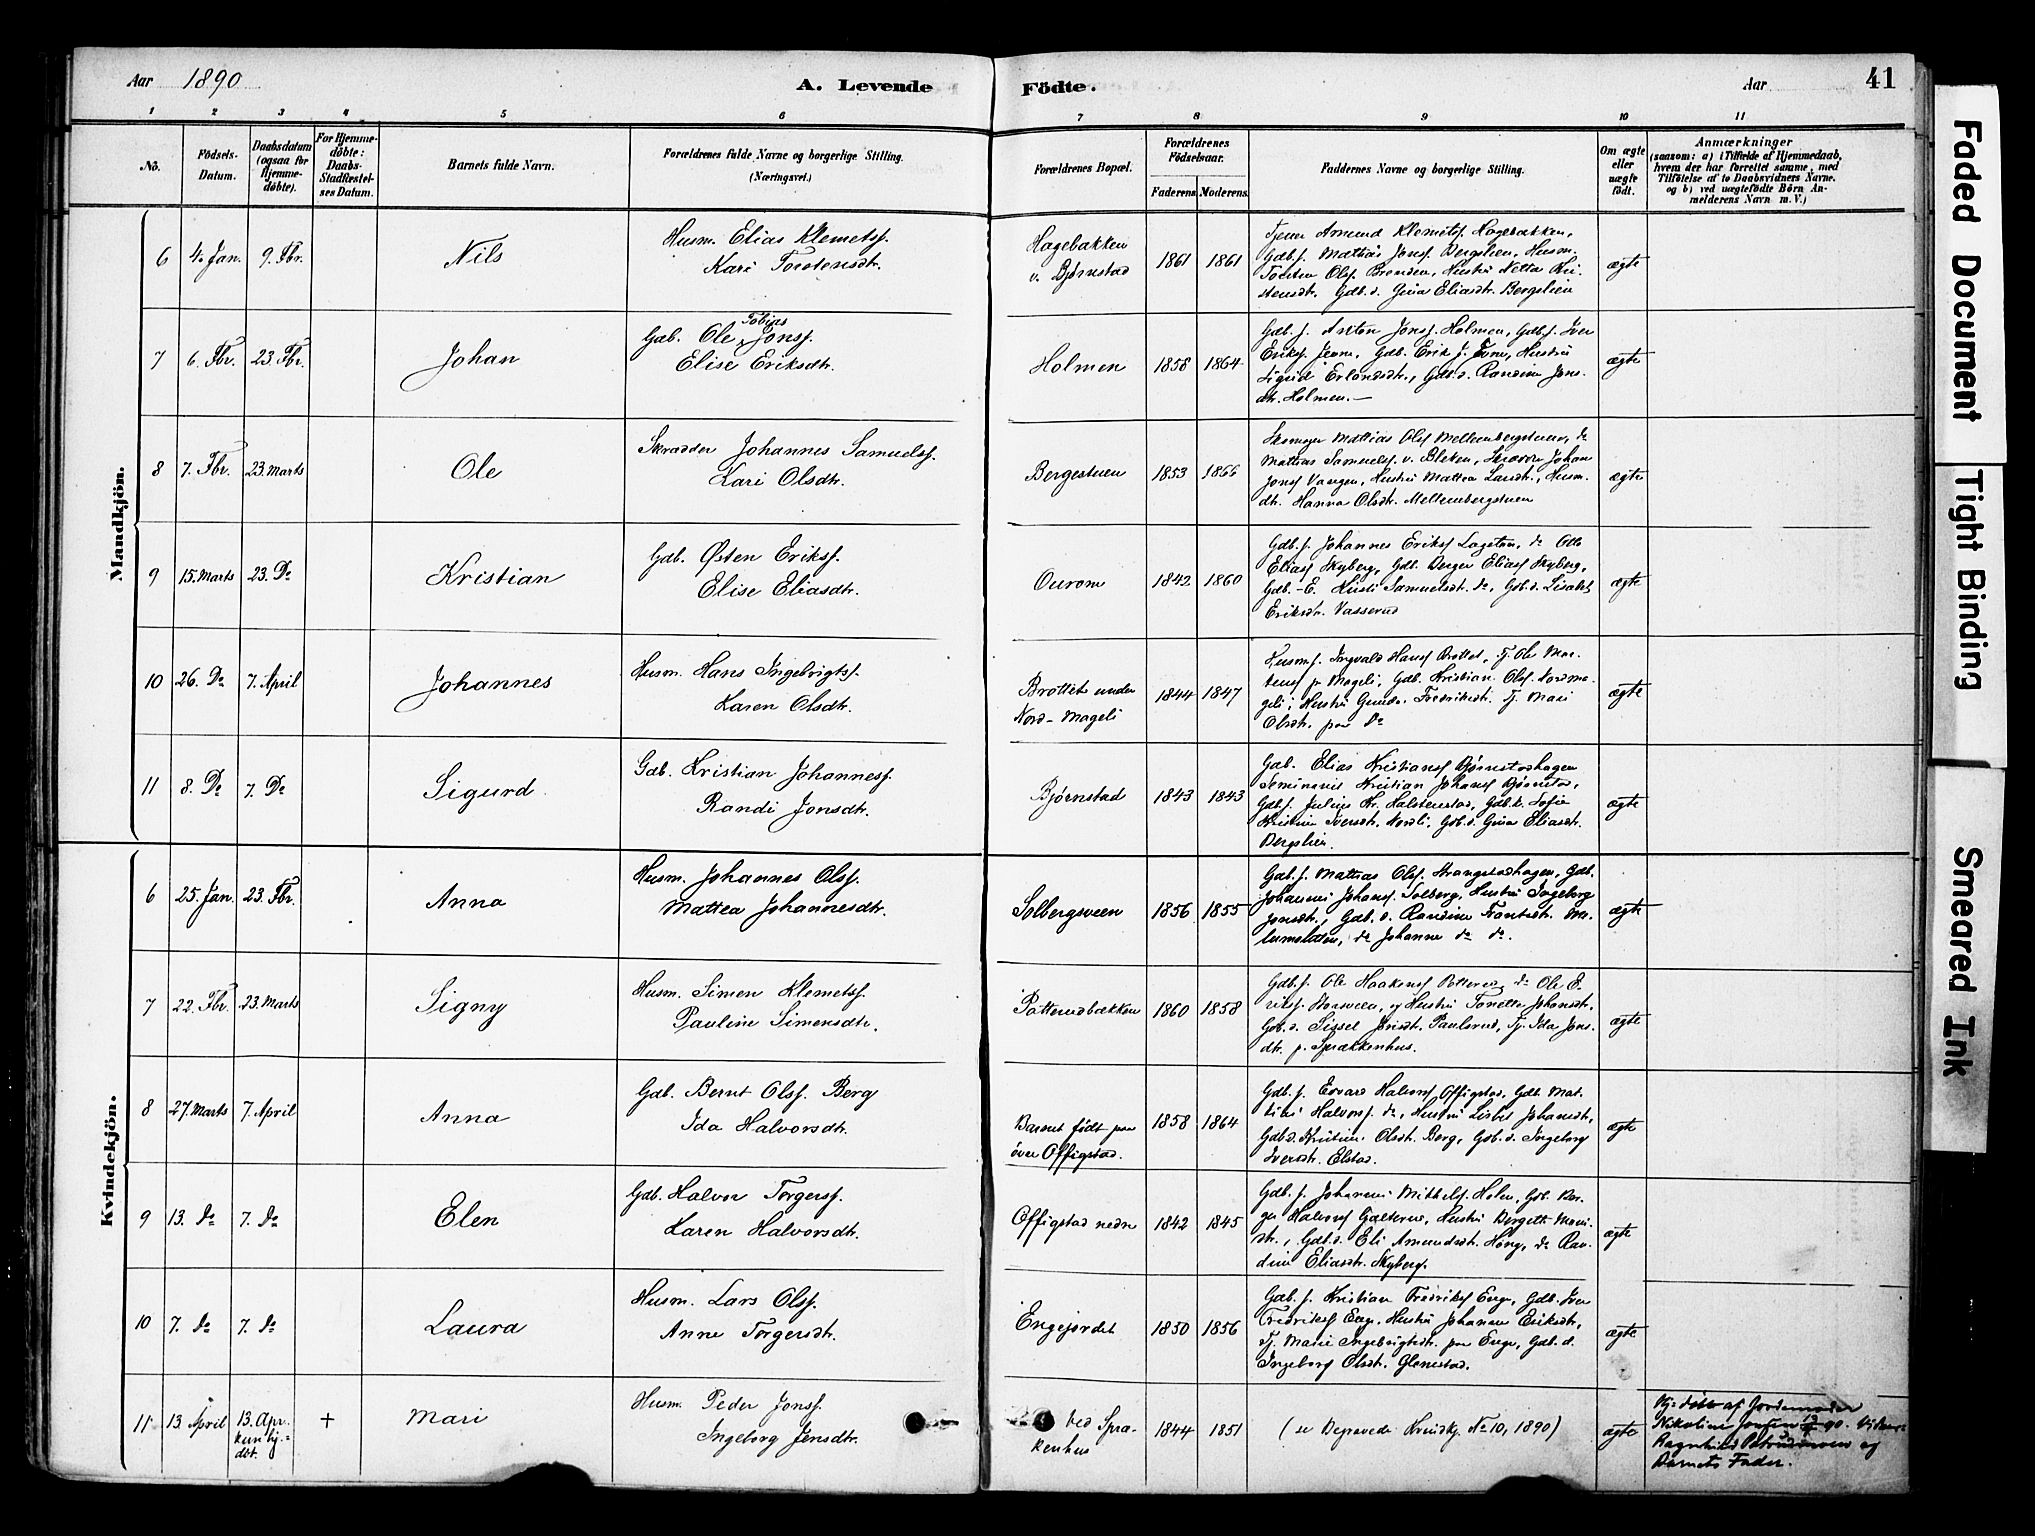 Aar 1890
A. Levende
Födte.
Aar
41
1 2 3 4 5 6 7 8 9 10 11
No.
Födsels-
Datum.
Daabsdatum
(ogsaa for
Hjemme-
döbte).
For Hjemme-
döbte:
Daabs-
Stadfæstel-
ses Datum.
Barnets fulde Navn.
Forældrenes fulde Navne og borgerlige Stilling.
(Næringsvei.)
Forældrenes Bopæl.
Forældrenes
Födselsaar.
Faderens.
Moderens.
Faddernes Navne og borgerlige Stilling.
Om ægte
eller
uægte
födt.
Anmærkninger
(saasom: a) i Tilfælde af Hjemmedaab,
hvem der har forrettet samme, med
Tilföielse af to Daabsvidners Navne,
og b) ved uægtefödte Börn An-
melderens Navn m. V.)
Mandkjön.
6 4. Jan. 9. Fbr. Nils
Husm. Elias Klemetsf.
Kari Torstensdtr.
Hagebakken
v. Bjørnstad
1861 1861
Tjener Amund Klemetsf. Hagebakken,
Gdb.f. Mathias Jonsf. Bergslien, Husm.
Torsten Olsf. Brenden, Hustru Netta Kri-
stensdtr. Gdb.d. Gina Eliasdtr. Bergslien
ægte
7 6. Fbr. 23. Fbr. Johan
Tobias
Gdb. Ole Jonsf.
Elise Eriksdtr.
Holmen
1858 1864
Gdb.f. Anton Jonsf. Holmen, Gdb.f. Iver
Eriksf. Jevne, Gdb. Erik J. Jevne, Hustru
Sigrid Erlandsdtr., Gdb.d. Randine Jons-
dtr. Holmen.—
ægte
8 7. Fbr. 23. Marts Ole
Skrædder Johannes Samuelsf.
Kari Olsdtr.
Bergestuen
1853 1866
Skomager Mathias Olsf. Mellembergstuen, do
Mathias Samuelsf. v. Bleken, Skrædder Johan
Jonsf. Vangen, Hustru Mattea Larsdtr., Husm.
dtr. Hanna Olsdtr. Mellembergstuen
ægte
9 15. Marts 23. Do Kristian
Gdb. Østen Eriksf.
Elise Eliasdtr.
Ourom
1842 1860
Gdb.f. Johannes Eriksf. do Otto
Eliasf. Skyberg, Gdb. Berger Eliasf. Skyberg,
Gdb.-E. Kirsti Samuelsdtr. do, Gdb.d. Lisabet
Eriksdtr. Vasserud
ægte
10 26. Do 7. April Johannes
Husm. Hans Ingebrigtsf.
Karen Olsdtr.
Brottet under
Nord-Mageli
1844 1847
Husm.f. Ingvald Hansf. Brottet, Tj. Ole Mor-
tensf. p. Mageli, Gdb. Kristian Olsf. Nordma-
geli, Hustru Gunda Fredriksdtr. Tj. Mari
Olsdtr. paa Do
ægte
11 8. Do 7. Do Sigurd
Gdb. Kristian Johannesf.
Randi Jonsdtr.
Bjørnstad
1843 1843
Gdb. Elias Kristiansf. Bjørnstadhagen
Seminarist Kristian Johansf. Bjørnstad,
Gdb.f. Julius Kr. Halstenstad, Gdb.k. Sofie
Kristine Iversdtr. Nordli, Gdb.d. Gina Eliasdtr.
Bergslien.
ægte
Kvindekjön.
6 25. Jan. 23. Fbr. Anna
Husm. Johannes Olsf.
Mattea Johannesdtr.
Solbergsveen
1856 1855
Gdb.f. Mathias Olsf. Strangstadhagen, Gdb.
Johannes Johansf. Solberg, Hustru Ingeborg
Jonsdtr., Gdb.d. Randine Frantsdtr. do Johanne do do.
ægte
7 22. Fbr. 23. Marts Signy
Husm. Simen Klemetsf.
Pauline Simensdtr.
Potterudbakken
1860 1858
Gdb.f. Ole Haakensf. Potterud, do Ole E-
riksf. Storsveen, og Hustru Tonette Johansdtr.
Gdb.d. Sissel Jonsdtr. Paulsrud, Tj. Ida Jons-
dtr. p. Sprækkenhus.
ægte
8 27. Marts 7. April Anna
Gdb. Bernt Olsf. Berg
Ida Halvorsdtr.
Barnet født paa
över Offigstad.
1858 1864
Gdb.f. Edvard Halvorsf. Offigstad, Gdb. Mat-
Halvorsf. do, Hustru Lisbet Johansdtr.,
Gdb.d. Kristine Olsdtr. Berg, Gdb.d. Ingeborg
Iversdtr. Elstad.
ægte
9 13. do 7. do Elen
Gdb. Halvor Torgersf.
Karen Halvorsdtr.
Offigstad nedre
1842 1845
Gdb.f. Johannes Mikkelsf. Holm, Gdb. Bør-
ge Halvorsf. Galterud, Hustru Bergette
Gdb.d. Eli Amundsdtr. Høng, do Ran-
dine Eliasdtr. Skyberg.
ægte
10 7. do 7. do Laura
Husm. Lars Olsf.
Anne Torgersdtr.
Engejordet
1850 1856
Gdb.f. Kristian Fredriksf. Enge, Gdb. Iver
Fredriksf. Enge, Hustru Johanne Eriksdtr.,
Tj. Marie Ingebrigtsdtr. paa Enge, Gdb.d.
Ingeborg Olsdtr. Glemstad.
ægte
11 13. April 13. Apr.
kun hj.=
dbt.
+ Mari
Husm. Peder Jonsf.
Ingeborg Jensdtr.
ved Spræ-
kenhus
1844 1851
(se Begravede Kvindkj. No 10, 1890)
ægte
Hj.døbt af Jordemoder
Nikoline Jonsen 13/4 90. Vidner:
Ragnhild og
Barnets Fader.
Faded Document
Tight Binding
Smeared Ink